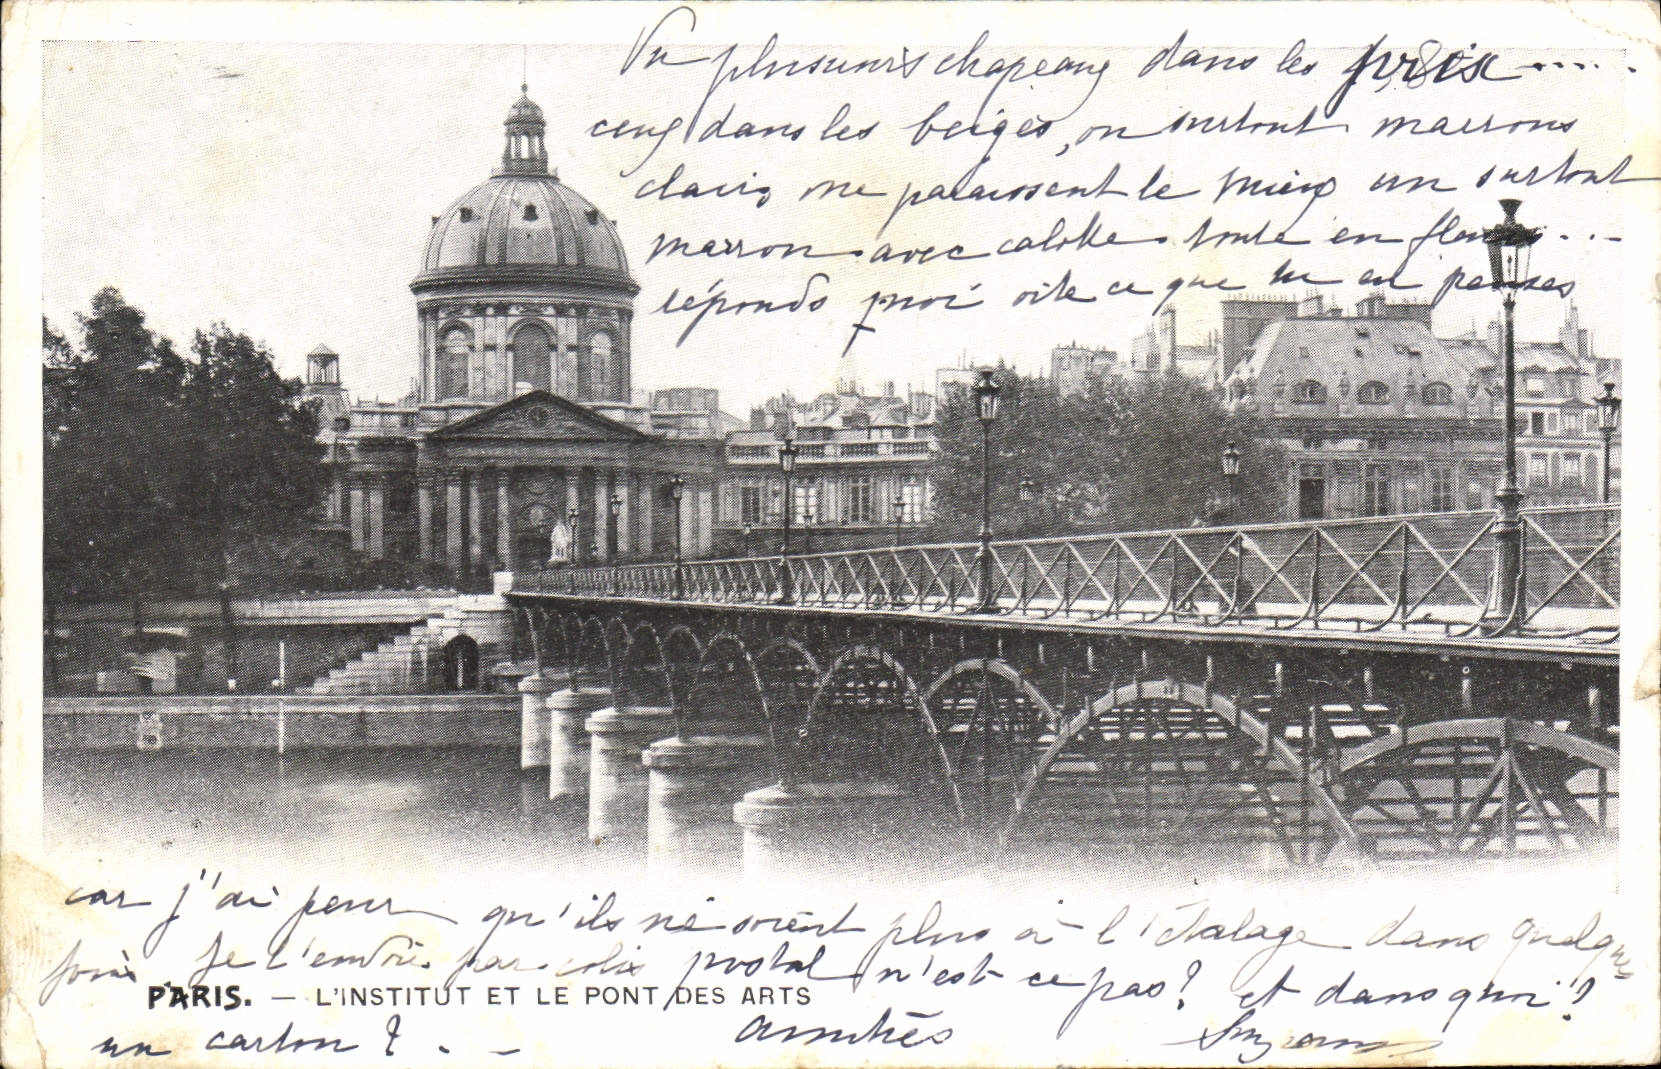 Vu plusieurs chapeaux dans les prix .....
ceux dans les beiges, ou surtout marrons
clairs me paraissent le mieux un surtout
marron avec calotte toute en fleurs...
réponds moi vite ce que tu en penses
car j'ai peur qu'ils ne soient plus à l'étalage dans quelques
jours Je l'envoie par colis postal n'est ce pas? et dans quoi?
PARIS. — L'INSTITUT ET LE PONT DES ARTS
un carton? . — amitiés Suzanne